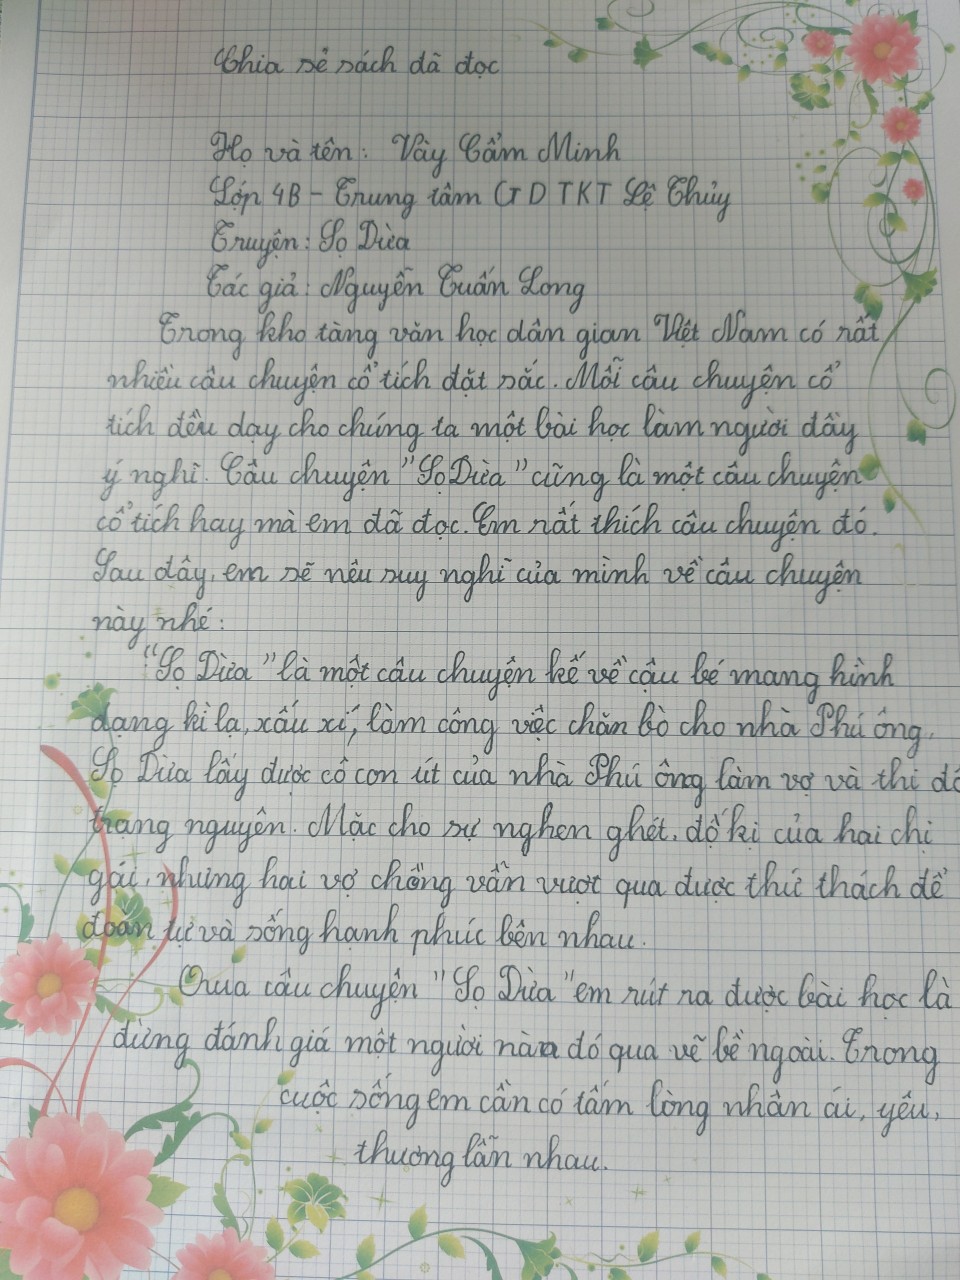 Chia sẻ sách đã đọc
Họ và tên: Vày Cẩm Minh
Lớp 4B - Trung tâm GD TKT Lệ Thủy
Truyện: Sọ Dừa
Tác giả: Nguyễn Tuấn Long
Trong kho tàng văn học dân gian Việt Nam có rất
nhiều câu chuyện cổ tích đặt sắc. Mỗi câu chuyện cổ
tích đều dạy cho chúng ta một bài học làm người đầy
ý nghĩ. Câu chuyện "Sọ Dừa" cũng là một câu chuyện
cổ tích hay mà em đã đọc. Em rất thích câu chuyện đó.
Sau đây, em sẽ nêu suy nghĩ của mình về câu chuyện
này nhé:
"Sọ Dừa" là một câu chuyện kể về cậu bé mang hình
dạng kì lạ, xấu xí, làm công việc chăn bò cho nhà Phú ông.
Sọ Dừa lấy được cô con út của nhà Phú ông làm vợ và thi đỗ
trạng nguyên. Mặc cho sự nghen ghét, đố kị của hai chị
gái, nhưng hai vợ chồng vẫn vượt qua được thử thách để
đoàn tụ và sống hạnh phúc bên nhau.
Qua câu chuyện "Sọ Dừa" em rút ra được bài học là
đừng đánh giá một người nào đó qua vẽ bề ngoài. Trong
cuộc sống em cần có tấm lòng nhân ái, yêu,
thương lẫn nhau.